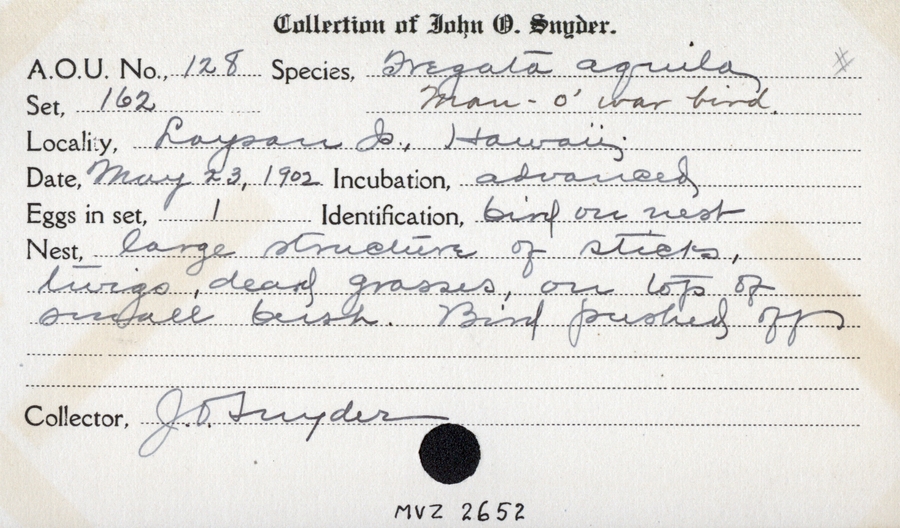 Collection of John O. Snyder.
A.O.U. No., 128 Species, Fregata aquila #
Set, 162 Man-o' war bird.
Locality, Laysan Is., Hawaii;
Date, May 23, 1902 Incubation, advanced
Eggs in set, 1 Identification, bird on nest
Nest, large structure of sticks,
twigs, dead grasses, on top of
small bush. Bird pushed off
Collector, J.O. Snyder
MVZ 2652